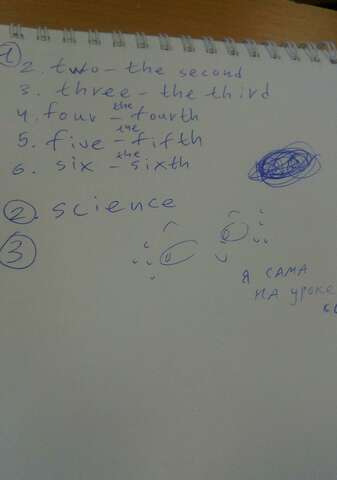 1
2. two - the second
3. three - the third
4. four - the fourth
5. five - the fifth
6. six - the sixth
2. science
3
я сама
на уроке